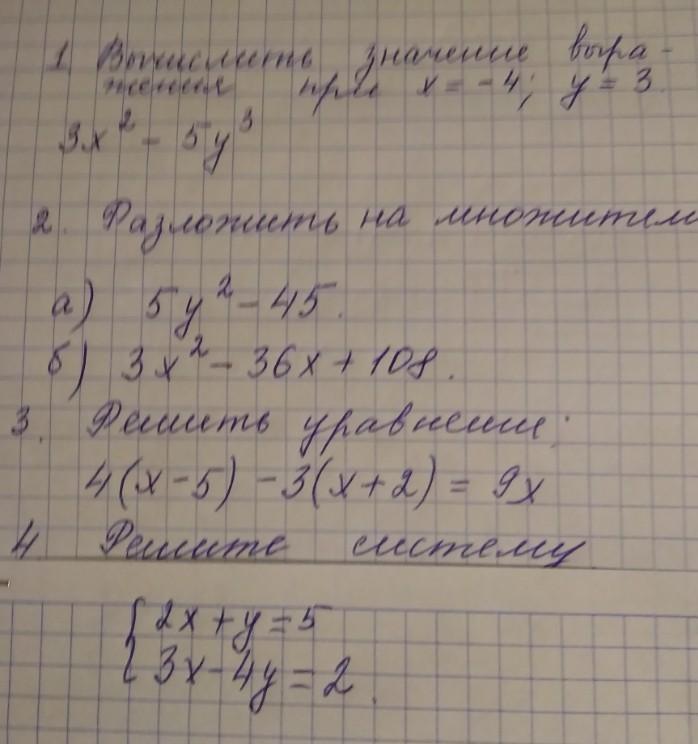 1. Вычислить значение выра-
жения при x = -4; y = 3.
3x² - 5y³
2. Разложить на множители
а) 5y² - 45.
б) 3x² - 36x + 108.
3. Решить уравнение:
4(x-5) - 3(x+2) = 9x
4 Решите систему
{ 2x + y = 5
{ 3x - 4y = 2.